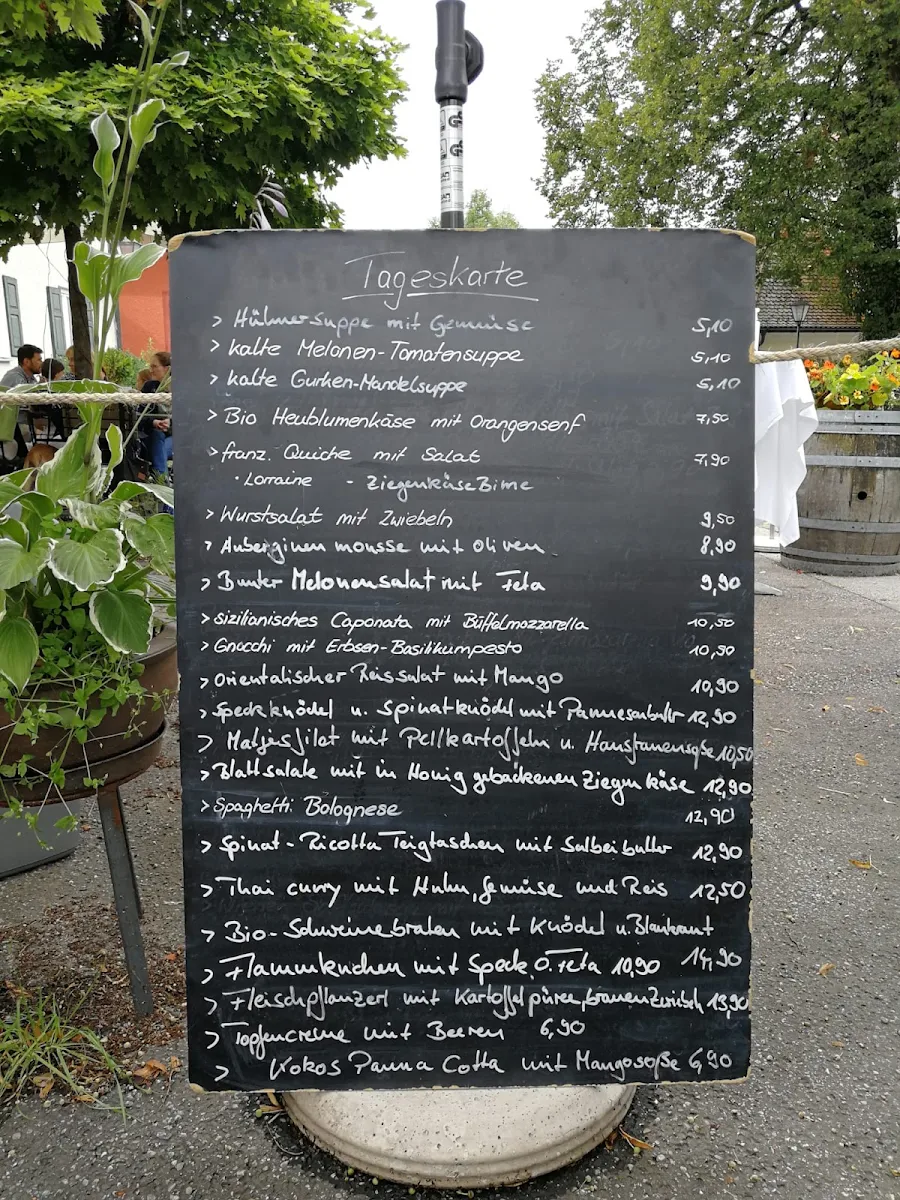 Tageskarte
> Hühnersuppe mit Gemüise 5,10
> kalte Melonen-Tomatensuppe 5,10
> kalte Gurken-Mandelsuppe 5,10
> Bio Heublumenkäse mit Orangensenf 7,50
> franz. Quiche mit Salat 7,90
· Lorraine - Ziegenkäse Birne
> Wurstsalat mit Zwiebeln 9,50
> Auberginen mousse mit oliven 8,90
> Bunter Melonensalat mit Feta 9,90
> sizilianisches Caponata mit Büffelmozzarella 10,50
> Gnocchi mit Erbsen-Basilikumpesto 10,90
> Orientalischer Reissalat mit Mango 10,90
> Speckknödel u. Spinatknödel mit Parmesanbuttr 12,90
> Matjesfilat mit Pellkartoffeln u. Hausfrauensoße 10,50
> Blattsalate mit in Honig gebackenen Ziegenkäse 12,90
> Spaghetti Bolognese 12,90
> Spinat-Ricotta Teigtaschen mit Salbeibuttr 12,90
> Thai curry mit Huhn, Gemüse und Reis 12,50
> Bio-Schweinebraten mit Knödel u. Blaukraut 14,90
> Flammkuchen mit Speck o. Feta 10,90
> Fleischpflanzerl mit Kartoffelpüree, braunen Zwiebeln 13,90
> Topfencreme mit Beeren 6,90
> Kokos Panna Cotta mit Mangosoße 6,90